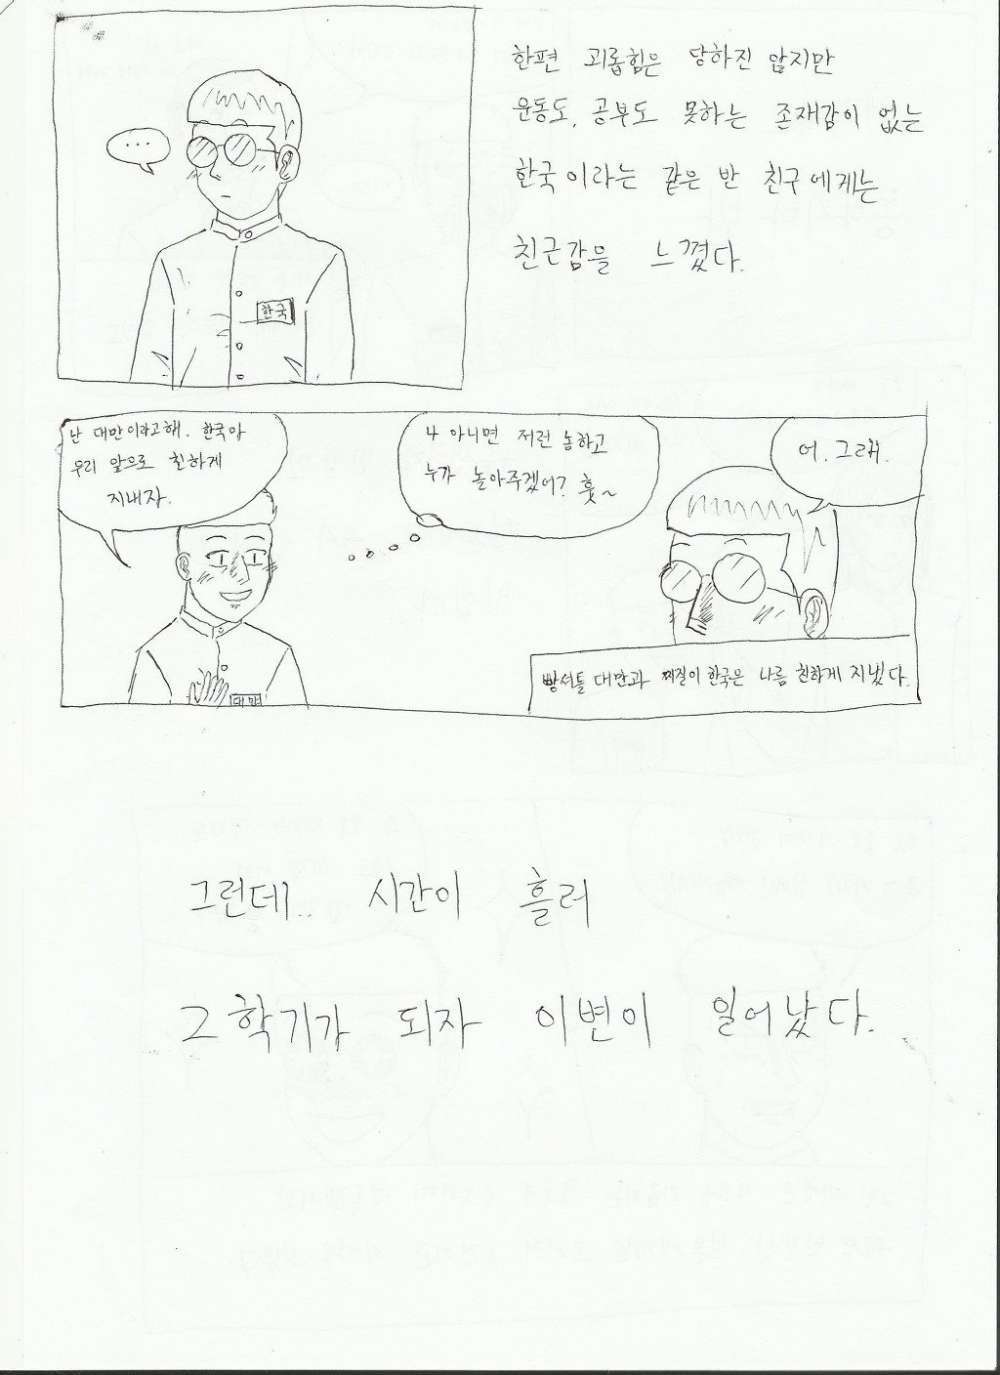 한편 괴롭힘은 당하진 않지만
운동도, 공부도 못하는 존재감이 없는
한국이라는 같은 반 친구에게는
친근감을 느꼈다.
...
한국
난 대만이라고해. 한국아
우리 앞으로 친하게
지내자.
나 아니면 저런 놈하고
누가 놀아주겠어? 훗~
어. 그래.
대만
빵셔틀 대만과 찌질이 한국은 나름 친하게 지냈다.
그런데.. 시간이 흘러
그 학기가 되자 이변이 일어났다.